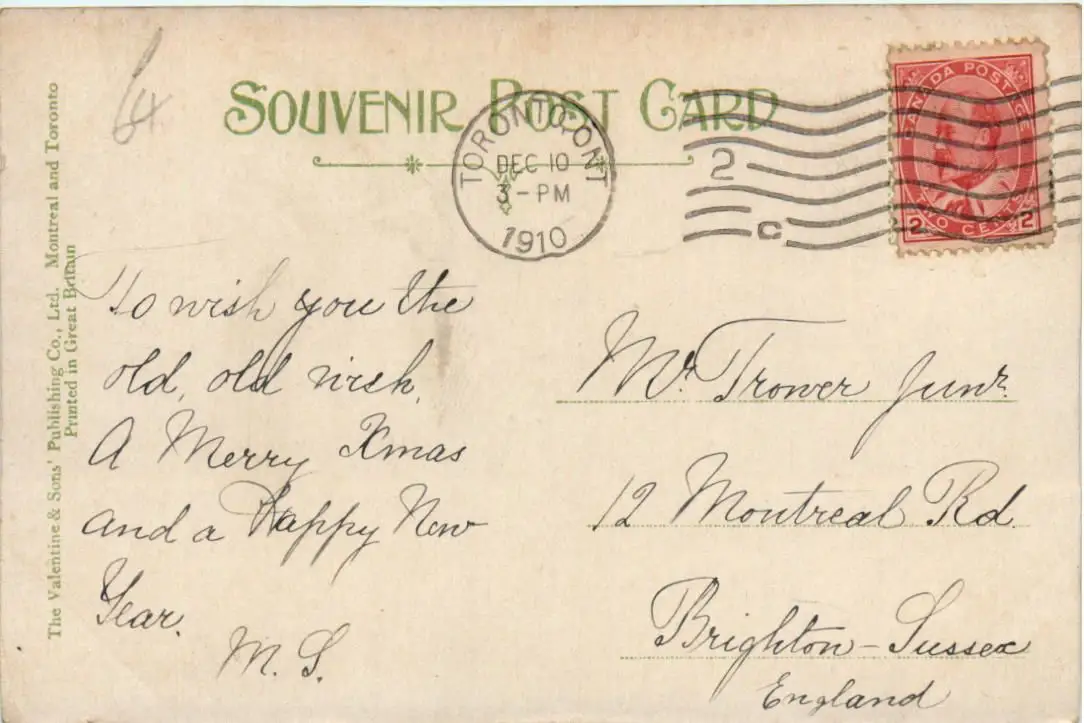 64
SOUVENIR POST CARD
TORONTO, ONT
DEC 10
3 - PM
1910
2
C
CANADA POSTAGE
TWO CENTS
2 2
The Valentine & Sons' Publishing Co., Ltd. Montreal and Toronto
Printed in Great Britain
To wish you the
old, old wish,
A Merry Xmas
and a Happy New
Year.
M. S.
Mr. Trower Junr.
12 Montreal Rd
Brighton - Sussex
England